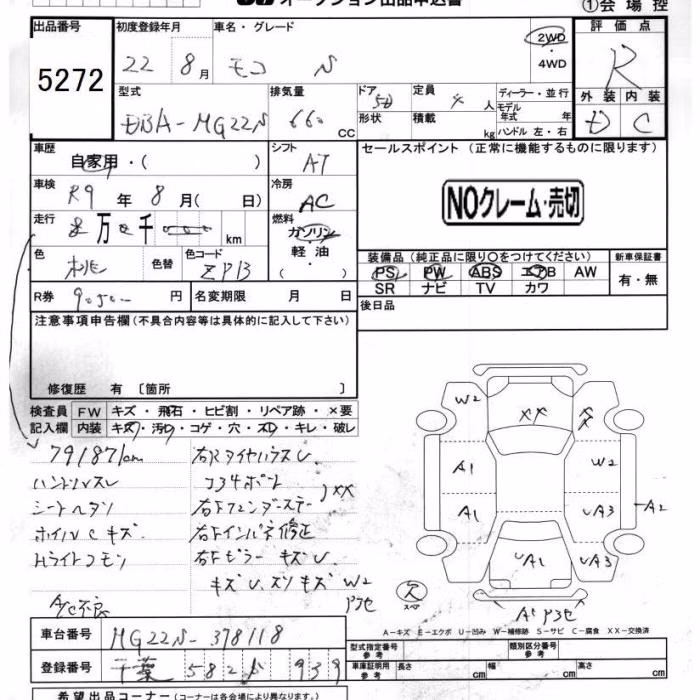 オークション出品申込書
①会場控
出品番号
5272
初度登録年月
22 8月
車名・グレード
モコ
2WD
・
4WD
評価点
R
外装 内装
D C
型式
DBA-MG22S
排気量
660 CC
ドア 5D
形状
定員 4 人
積載 kg
ディーラー・並行
モデル年式 年
ハンドル 左・右
車歴
自家用・( )
シフト
AT
セールスポイント (正常に機能するものに限ります)
NOクレーム・売切
車検
R9 年 8 月( 日)
冷房
AC
走行
万 千 km
燃料
ガソリン
軽・油
・( )
色
桃
色替
色コード
ZPB
装備品(純正品に限り○をつけてください)
PS PW ABS エアB AW
SR ナビ TV カワ
新車保証書
有・無
R券 円
名変期限 月 日
後日品
注意事項申告欄(不具合内容等は具体的に記入して下さい)
修復歴 有 〔箇所 〕
検査員記入欄
FW キズ・飛石・ヒビ割・リペア跡・×要
内装 キズ・汚レ・コゲ・穴・スレ・キレ・破レ
79187km
ハンドルスレ
シートヘタリ
ホイルCキズ
Hライトクモリ
A/C不良
右RタイヤハウスU
コアサポート
右Fフェンダーステー
XX
右Fインパネ修正
右Fピラー キズU
キズU、スリキズ W2
P3セ
W2
XX
A1
W2
A1
UA3
A2
UA1
UA3
A1 P3セ
欠
スペア
A-キズ E-エクボ U-凹み W-補修跡 S-サビ C-腐食 XX-交換済
車台番号
MG22S-378118
登録番号
千葉 582 939
型式指定番号
類別区分番号
車庫証明用参考
長さ cm
幅 cm
高さ cm
希望出品コーナー(コーナーは各会場により異なります。)